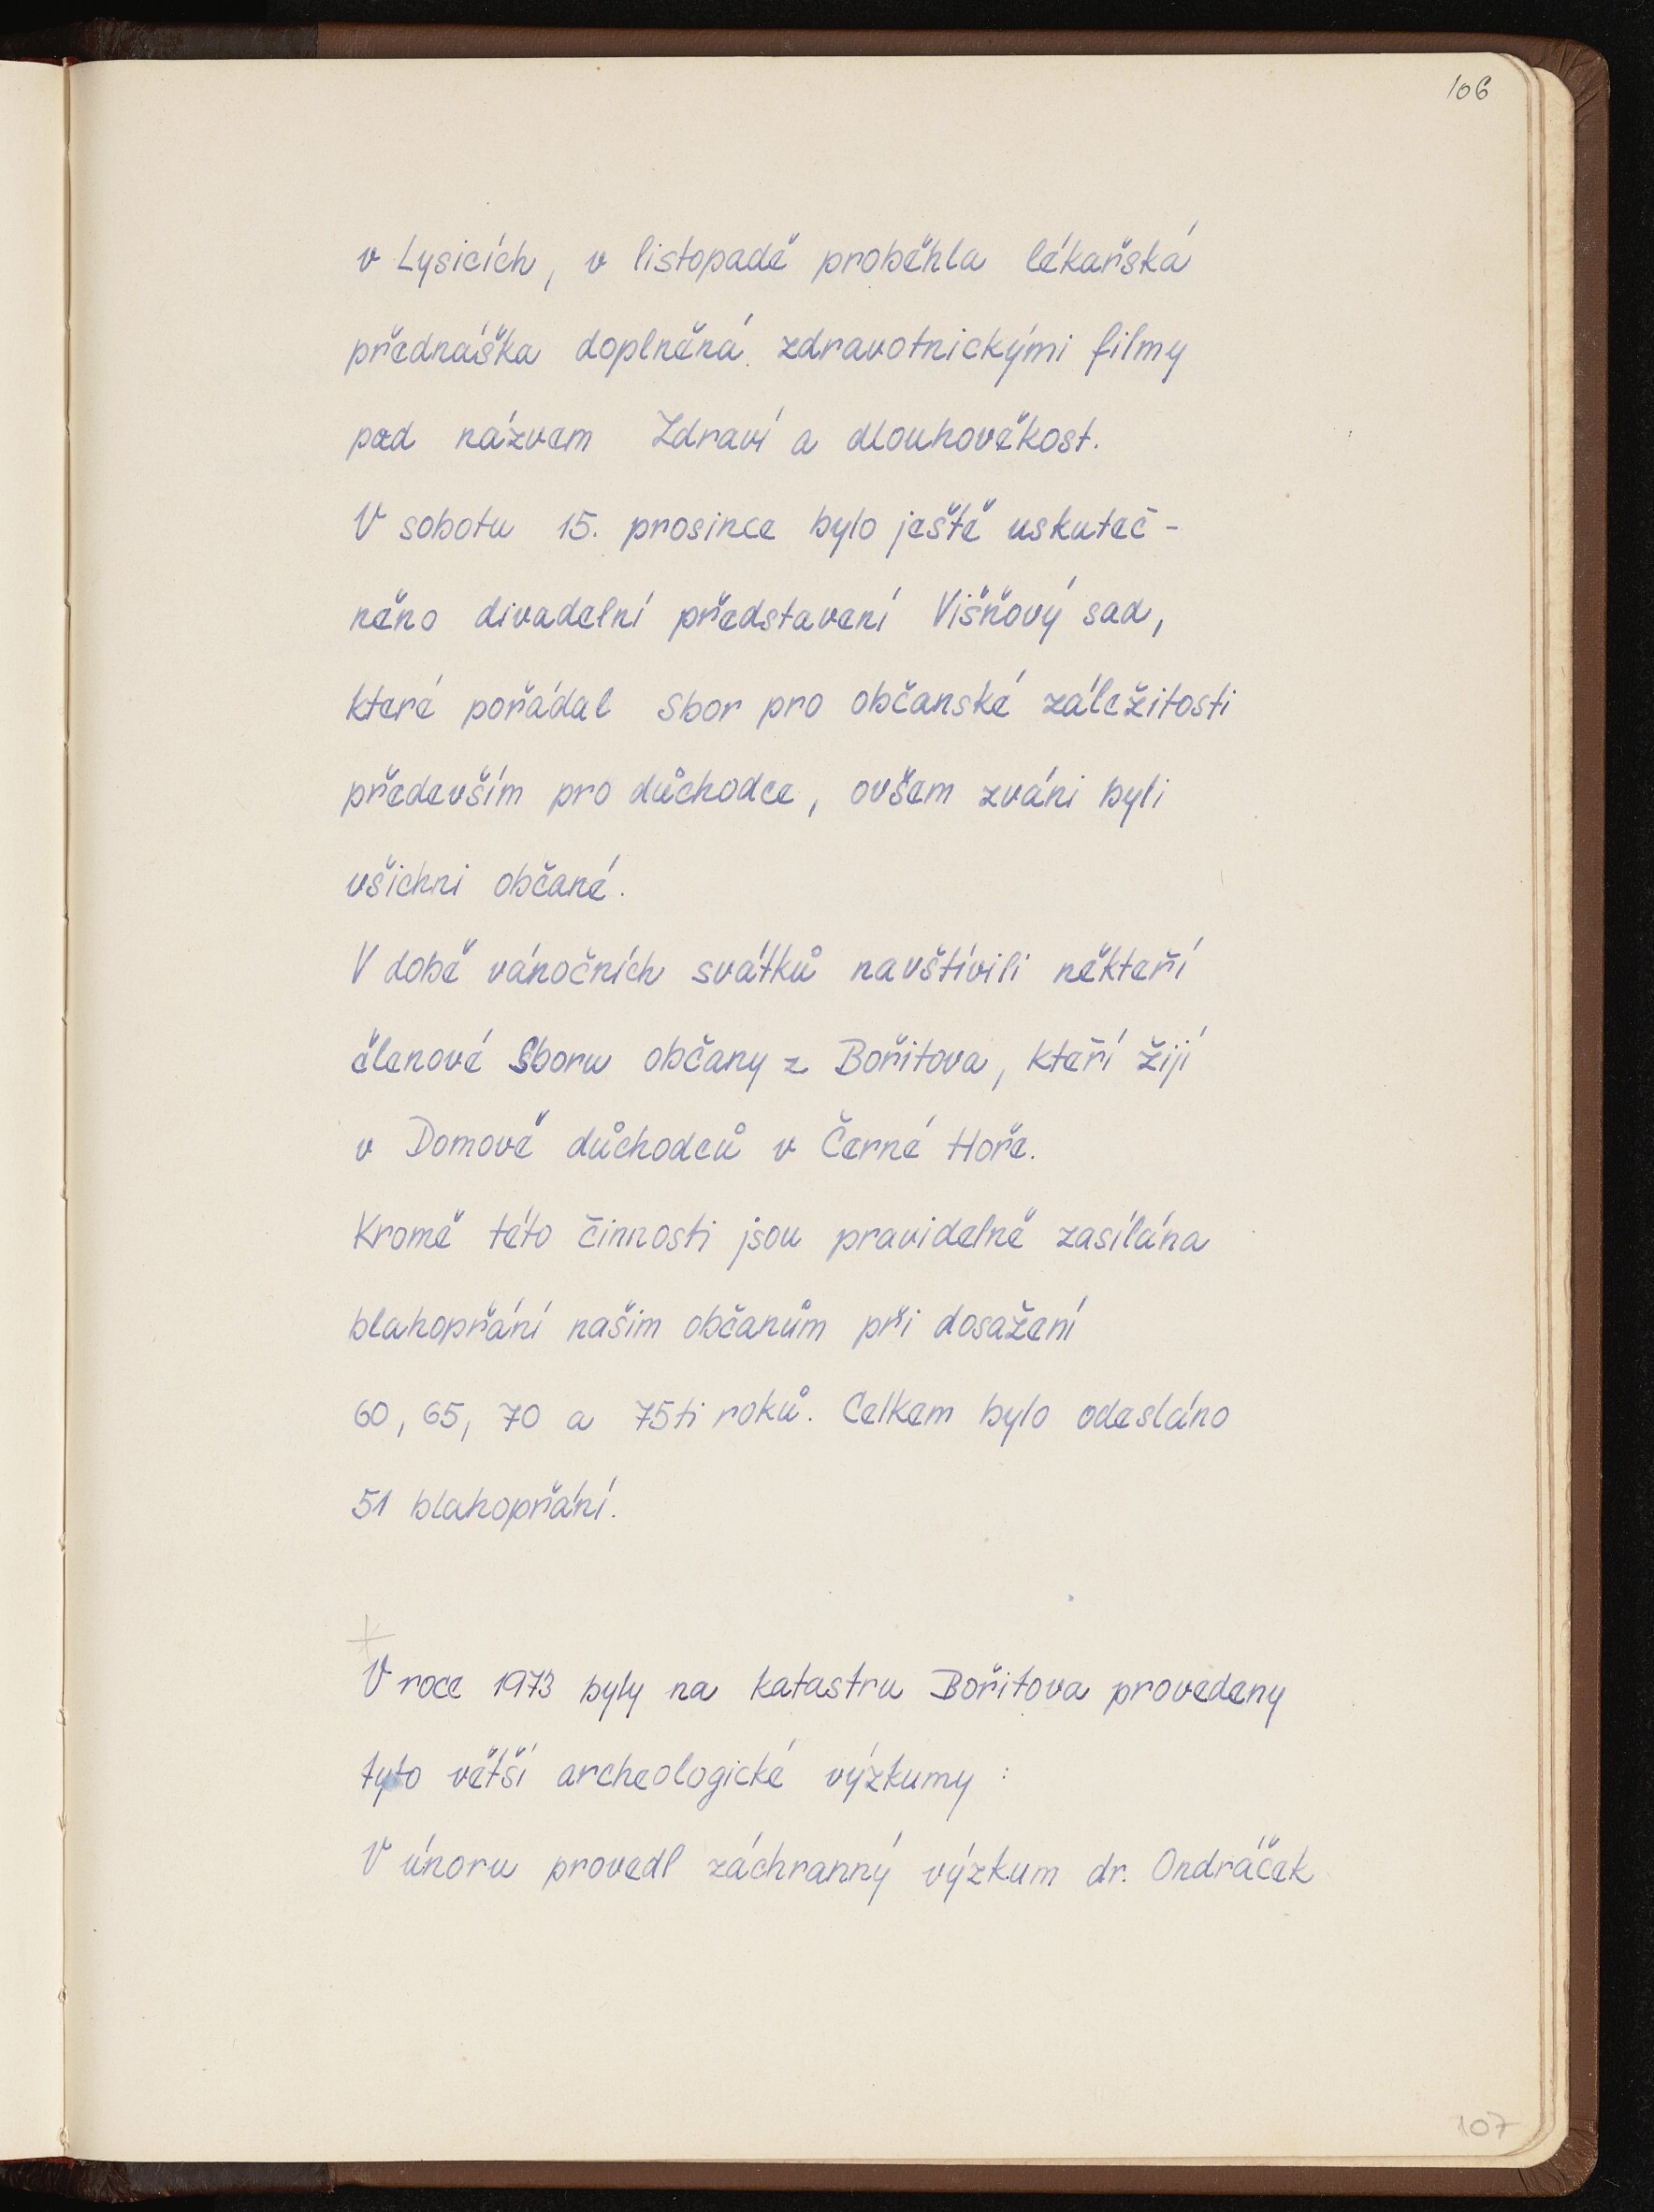 106
v Lysicích, v listopadě proběhla lékařská
přednáška doplněná zdravotnickými filmy
pod názvem Zdraví a dlouhověkost.
V sobotu 15. prosince bylo ještě uskuteč-
něno divadelní představení Višňový sad,
které pořádal Sbor pro občanské záležitosti
především pro důchodce, ovšem zváni byli
všichni občané.
V době vánočních svátků navštívili někteří
členové Sboru občany z Bořitova, kteří žijí
v Domově důchodců v Černé Hoře.
Kromě této činnosti jsou pravidelně zasílána
blahopřání našim občanům při dosažení
60, 65, 70 a 75ti roků. Celkem bylo odesláno
51 blahopřání.
V roce 1973 byly na katastru Bořitova provedeny
tyto větší archeologické výzkumy :
V únoru provedl záchranný výzkum dr. Ondráček
107